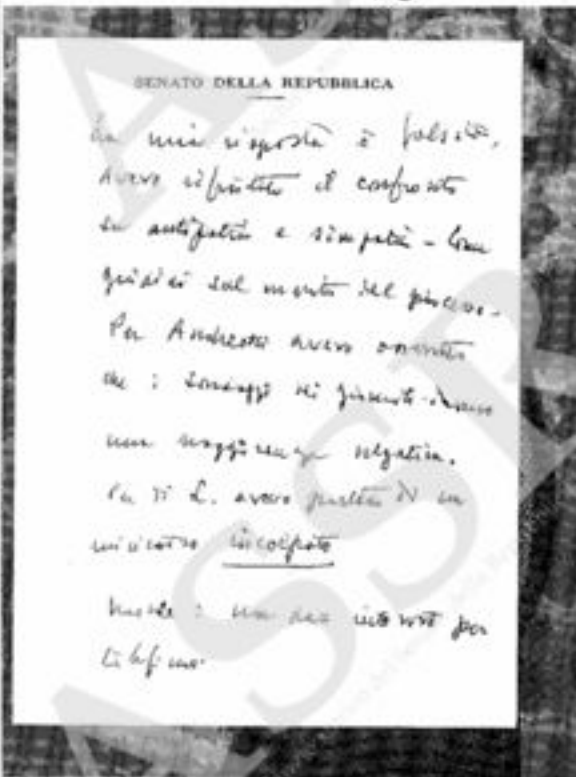 SENATO DELLA REPUBBLICA
La mia risposta è falsata.
Avevo rifiutato il confronto
su antipatia e simpatia - Come
giudizi sul merito del
Per Andreotti avevo
che i sondaggi dei davano
una maggioranza negativa.
Per di L. avevo parlato di un
ministro incolpato
Morale: non dare interviste per
telefono.
ASSR